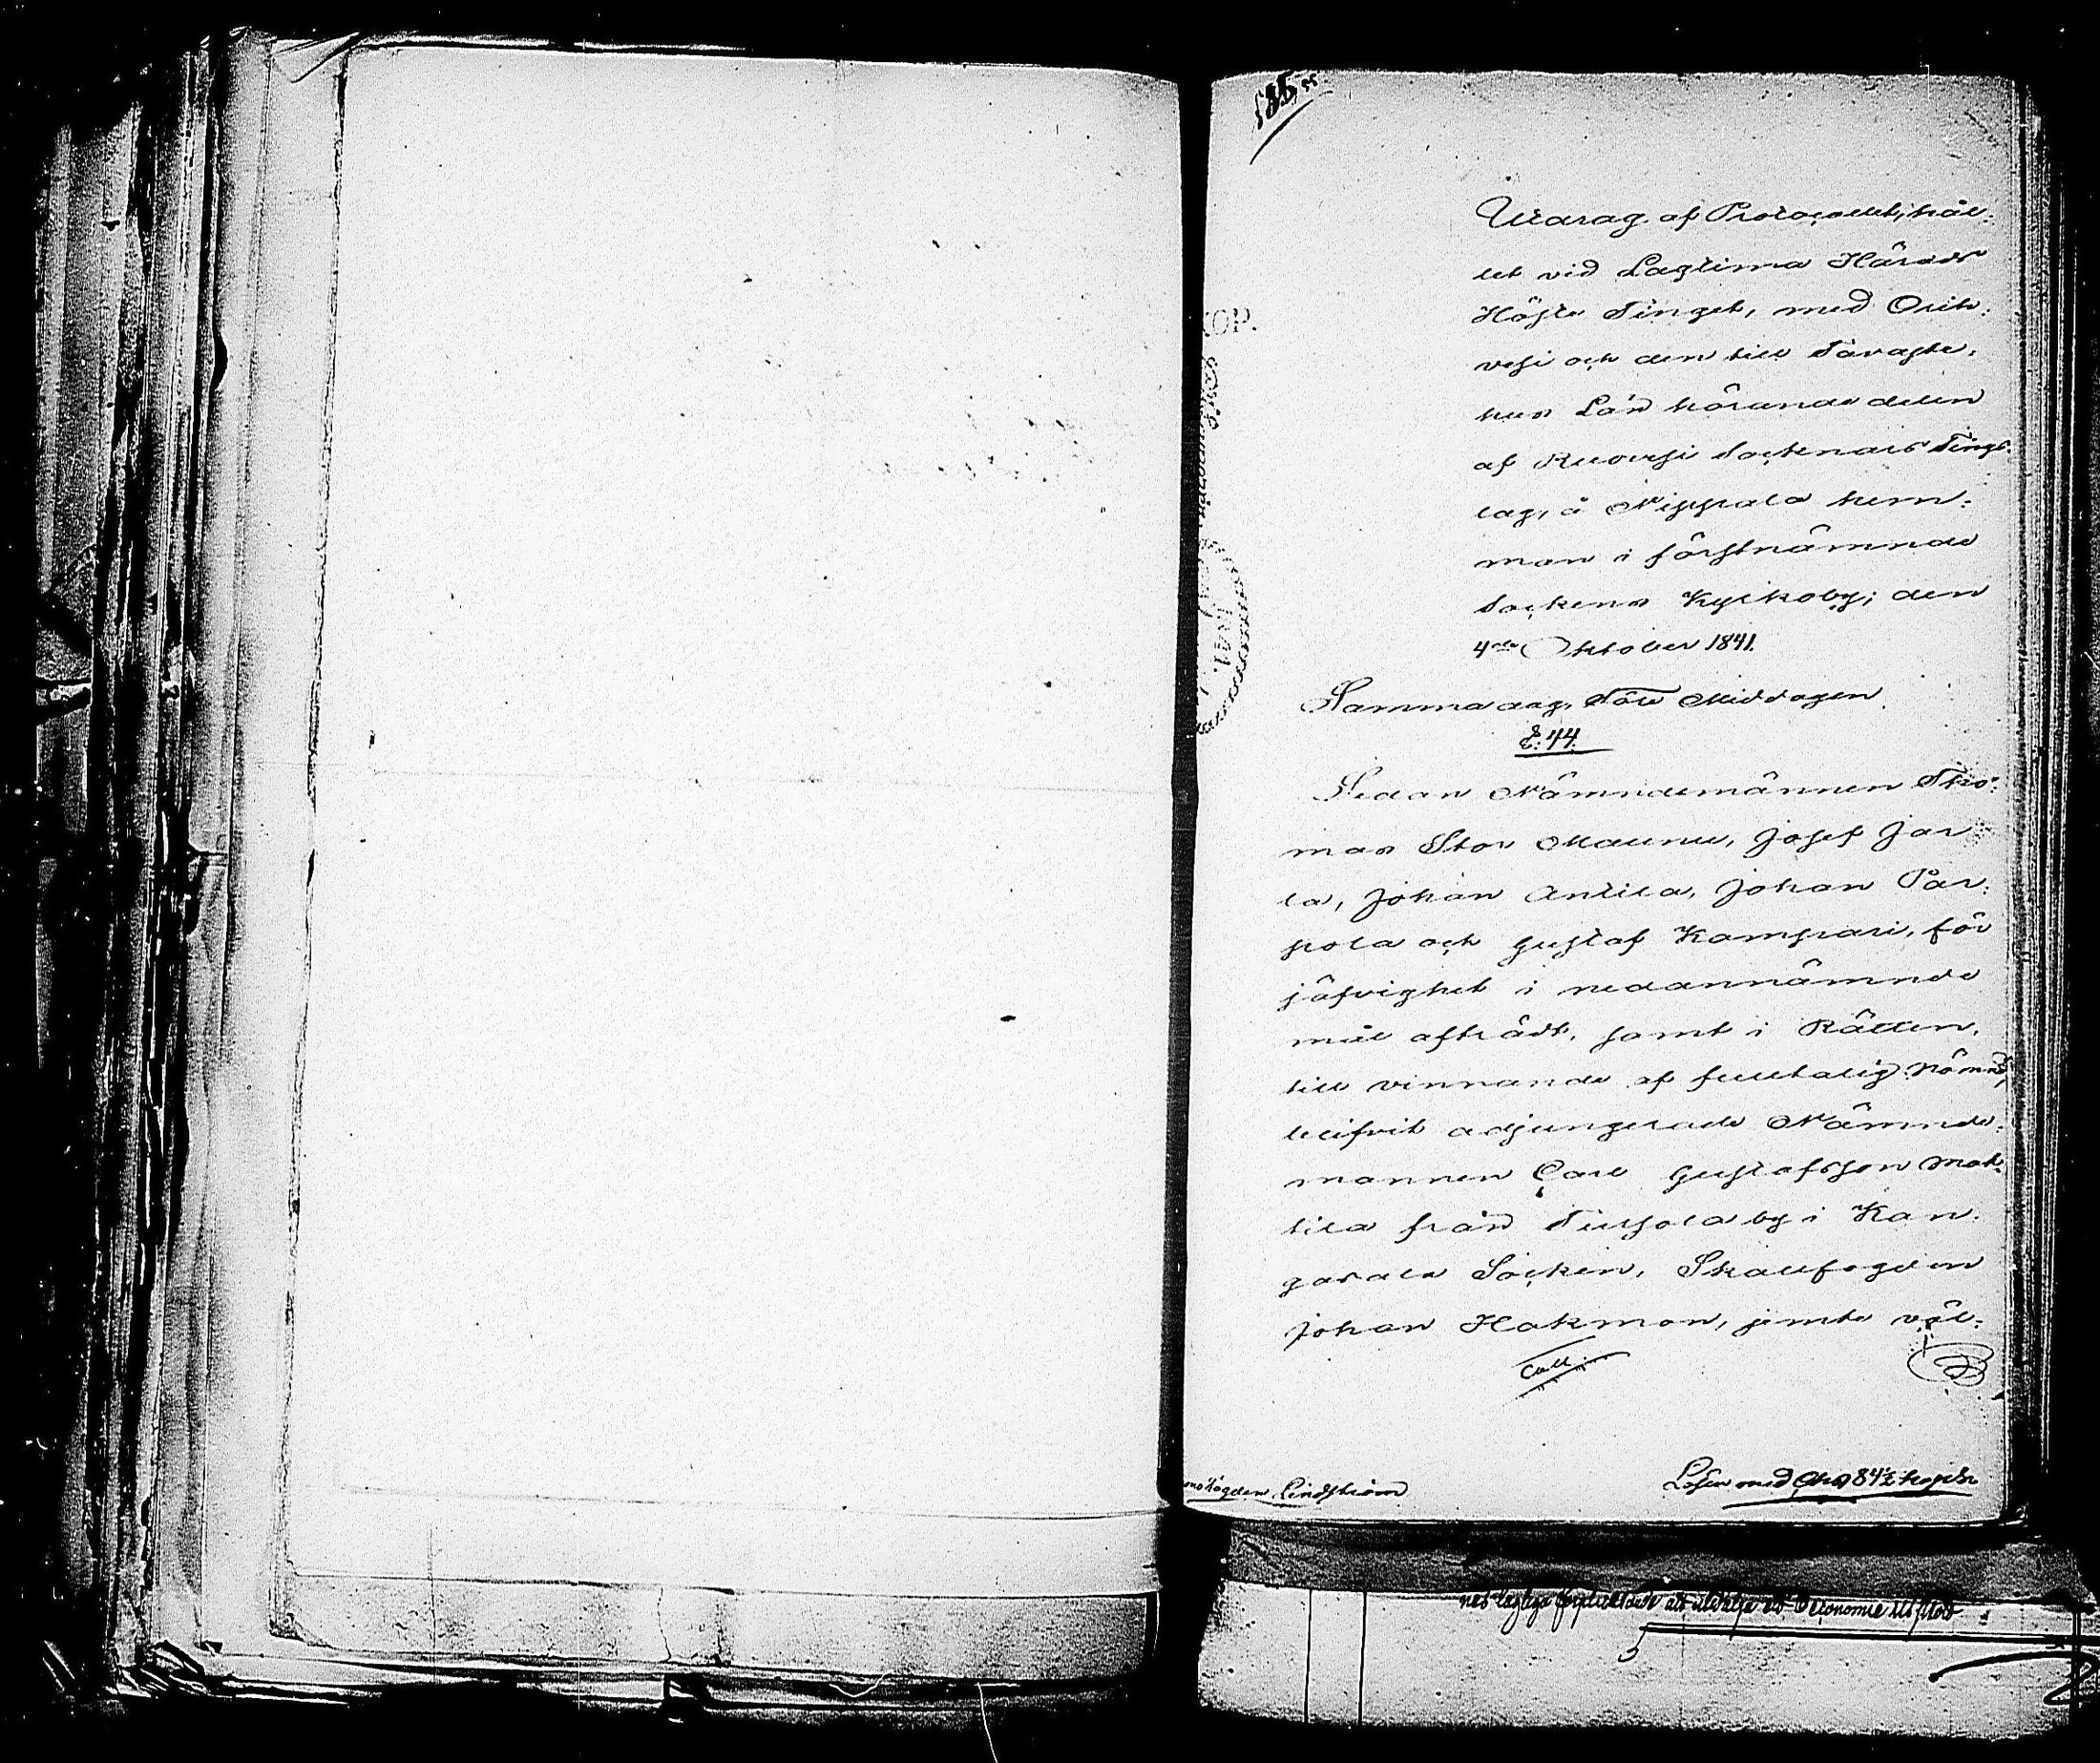 Utdrag af Protocollet, hål:
let vid Lagtima Härads
Höste Tinget, med Orih:
vesi och den till Tavaste,
hus Län hörande delen
af Ruovesi Socknars Tings:
lag, å Nippala hem:
man i förstnämnde
Sockens Kyrkoby; den
4de Oktober 1841.
Samma dag, Före Middagen.
§. 44.
Sedan Nämndemännen Tho:
mas Stor Maunu, Josef Jar
la, Johan Antila, Johan Par:
pola och Gustaf Kampari, för
jäfvighet i nedannämnde
mål afträdt, samt i Rätten,
till vinnande af fulltalig Nämnd,
blifvit adjungerade Nämnde:
mannen Carl Gustafsson Mat:
tila från Tiihola by i Kan:
gasala Socken, Skallfogden
Johan Hakman, jemte väl:
Coll.
Lindström
Lösen med 84½ kopek